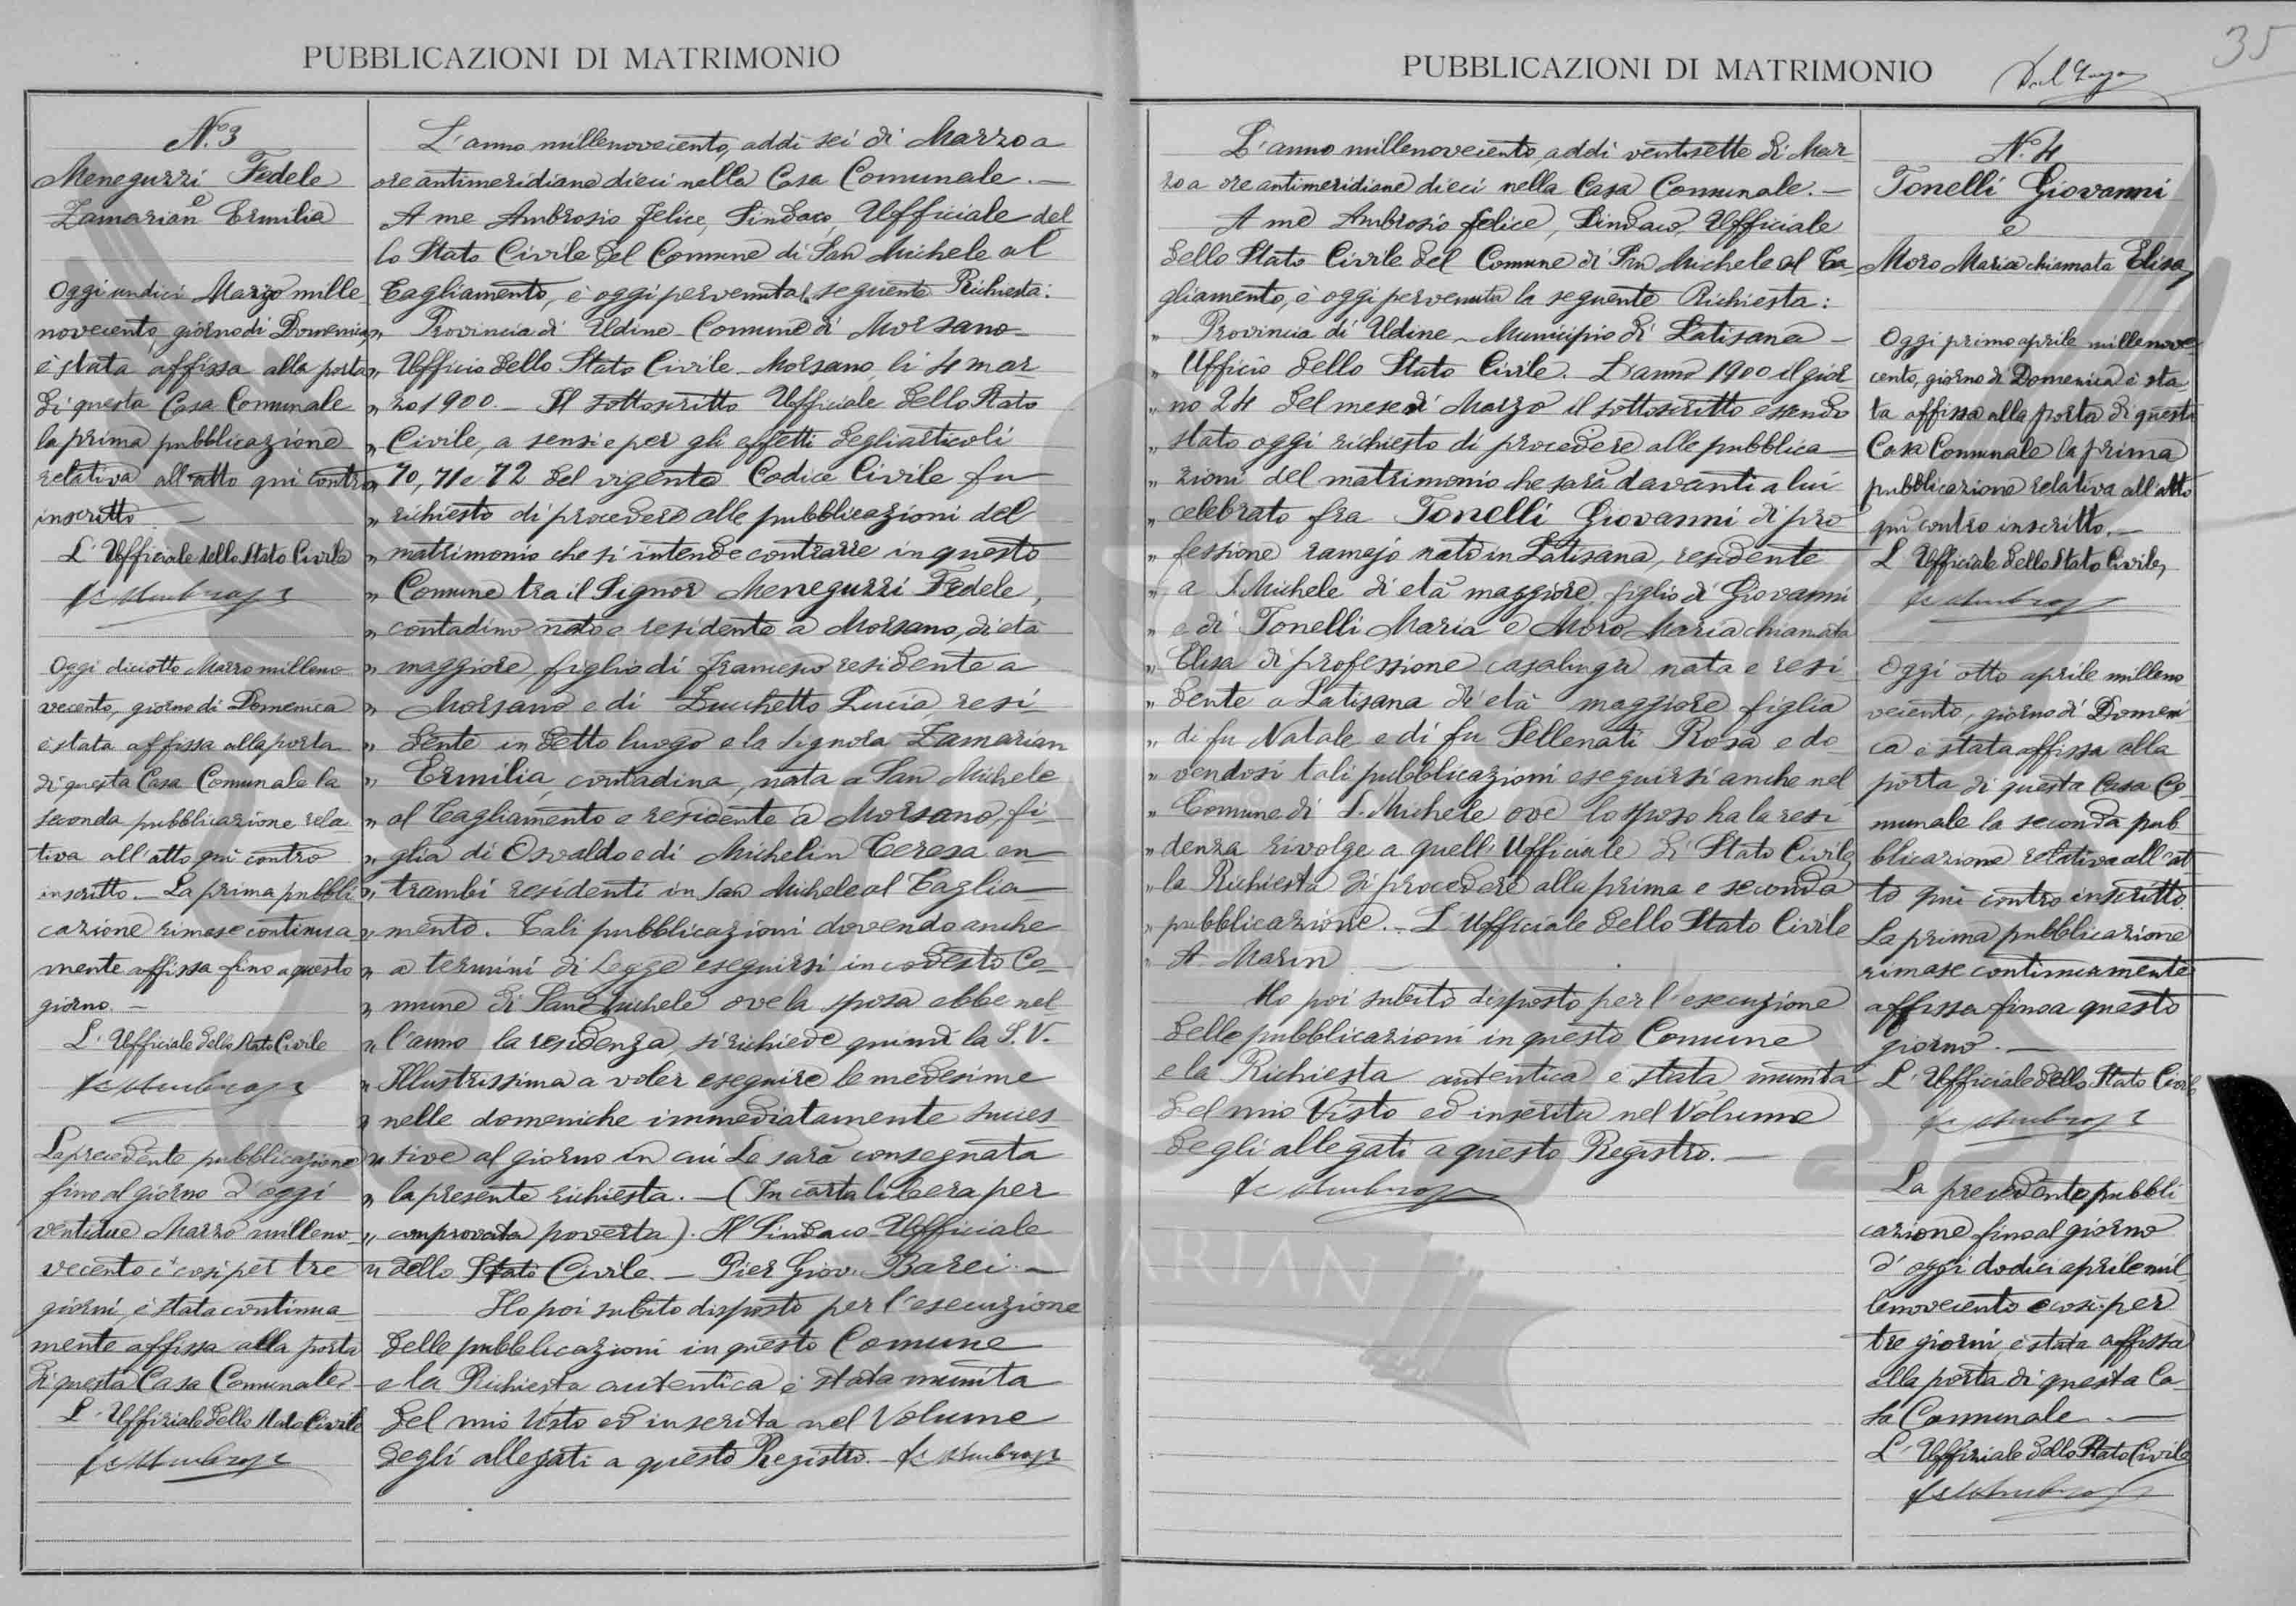 PUBBLICAZIONI DI MATRIMONIO
N.º 3
Meneguzzi Fedele
e
Zamarian Ermilia
Oggi undici Marzo mille
novecento, giorno di Domenica,
è stata affissa alla porta
di questa Casa Comunale
la prima pubblicazione
relativa all'atto qui contro
inscritto. —
L'Ufficiale dello Stato Civile
Oggi diciotto Marzo milleno
vecento, giorno di Domenica
è stata affissa alla porta
di questa Casa Comunale la
seconda pubblicazione rela
tiva all'atto qui contro
inscritto. — La prima pubbli
cazione rimase continua
mente affissa fino a questo
giorno. —
L'Ufficiale dello Stato Civile
La precedente pubblicazione
fino al giorno d'oggi
ventidue Marzo milleno
vecento e così per tre
giorni, è stata continua
mente affissa alla porta
di questa Casa Comunale
L'Uffiziale dello Stato Civile
L'anno millenovecento, addì sei di Marzo a
ore antimeridiane dieci nella Casa Comunale. —
A me Ambrosio Felice, Sindaco, Ufficiale del
lo Stato Civile del Comune di San Michele al
Tagliamento, è oggi pervenuta la seguente Richiesta:
„ Provincia di Udine - Comune di Morsano —
„ Ufficio dello Stato Civile - Morsano li 4 mar
„ zo 1900. — Il sottoscritto Ufficiale dello Stato
„ Civile, a sensi e per gli effetti degli articoli
„ 70, 71 e 72 del vigente Codice Civile fu
„ richiesto di procedere alle pubblicazioni del
„ matrimonio che si intende contrarre in questo
„ Comune tra il Signor Meneguzzi Fedele,
„ contadino nato e residente a Morsano, di età
„ maggiore, figlio di Francesco residente a
„ Morsano e di Zucchetto Lucia, resi
„ dente in detto luogo e la Signora Zamarian
„ Ermilia, contadina, nata a San Michele
„ al Tagliamento e residente a Morsano, fi
„ glia di Osvaldo e di Michelin Teresa en
„ trambi residenti in San Michele al Taglia
„ mento. Tali pubblicazioni dovendo anche
„ a termini di Legge eseguirsi in codesto Co
„ mune di San Michele ove la sposa ebbe nel
„ l'anno la residenza, si richiede quindi la S.V.
„ Illustrissima a voler eseguire le medesime
„ nelle domeniche immediatamente succes
„ sive al giorno in cui Le sarà consegnata
„ la presente richiesta. — (In carta libera per
„ comprovata povertà). Il Sindaco Ufficiale
„ dello Stato Civile. — Pier Giov. Barei —
Ho poi subito disposto per l'esecuzione
delle pubblicazioni in questo Comune
e la Richiesta autentica è stata munita
del mio Visto ed inserita nel Volume
degli allegati a questo Registro. —
PUBBLICAZIONI DI MATRIMONIO
35
L'anno millenovecento, addì ventisette di Mar
zo a ore antimeridiane dieci nella Casa Comunale. —
A me Ambrosio Felice, Sindaco, Ufficiale
dello Stato Civile del Comune di San Michele al Ta
gliamento, è oggi pervenuta la seguente Richiesta:
„ Provincia di Udine - Municipio di Latisana —
„ Ufficio dello Stato Civile. L'anno 1900 il gior
„ no 24 del mese di Marzo il sottoscritto essendo
„ stato oggi richiesto di procedere alle pubblica
„ zioni del matrimonio che sarà davanti a lui
„ celebrato fra Tonelli Giovanni di pro
„ fessione ramajo nato in Latisana, residente
„ a S. Michele di età maggiore figlio di Giovanni
„ e di Tonelli Maria e Moro Maria chiamata
„ Elisa di professione casalinga nata e resi
„ dente a Latisana di età maggiore figlia
„ di fu Natale e di fu Sellenati Rosa e do
„ vendosi tali pubblicazioni eseguirsi anche nel
„ Comune di S. Michele ove lo sposo ha la resi
„ denza rivolge a quell'Ufficiale di Stato Civile
„ la Richiesta di procedere alla prima e seconda
„ pubblicazione. - L'Ufficiale dello Stato Civile
„ A. Marin
Ho poi subito disposto per l'esecuzione
delle pubblicazioni in questo Comune
e la Richiesta autentica è stata munita
del mio Visto ed inserita nel Volume
degli allegati a questo Registro. —
N.º 4
Tonelli Giovanni
e
Moro Maria chiamata Elisa
Oggi primo aprile millenove
cento, giorno di Domenica è sta
ta affissa alla porta di questa
Casa Comunale la prima
pubblicazione relativa all'atto
qui contro inscritto. —
L'Ufficiale dello Stato Civile,
Oggi otto aprile milleno
vecento, giorno di Domeni
ca è stata affissa alla
porta di questa Casa Co
munale la seconda pub
blicazione relativa all'at
to qui contro inscritto.
La prima pubblicazione
rimase continuamente
affissa fino a questo
giorno. —
L'Ufficiale dello Stato Civile
La precedente pubbli
cazione fino al giorno
d'oggi dodici aprile mil
lenovecento e così per
tre giorni, è stata affissa
alla porta di questa Ca
sa Comunale. —
L'Uffiziale dello Stato Civile